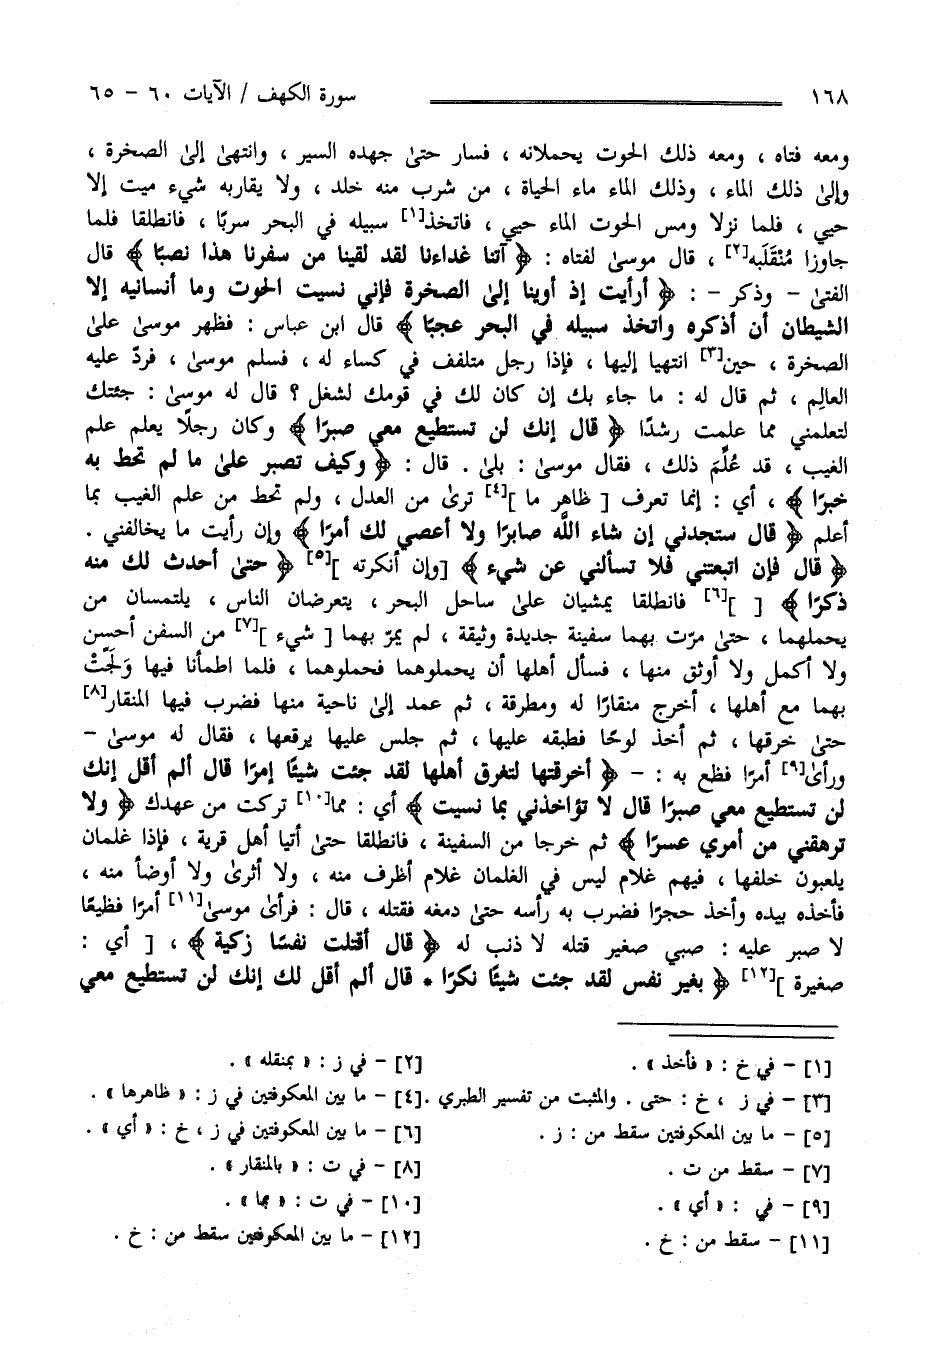 ١٦٨ سورة الكهف / الآيات ٦٠ - ٦٥
ومعه فتاه ، ومعه ذلك الحوت يحملانه ، فسار حتىٰ جهده السير ، وانتهىٰ إلىٰ الصخرة ،
وإلىٰ ذلك الماء ، وذلك الماء ماء الحياة ، من شرب منه خلد ، ولا يقاربه شيء ميت إلا
حيي ، فلما نزلا ومس الحوت الماء حيي ، فاتخذ[١] سبيله في البحر سربًا ، فانطلقا فلما
جاوزا مُنْقَلَبه[٢] ، قال موسىٰ لفتاه : ﴿ آتنا غداءنا لقد لقينا من سفرنا هذا نصبًا ﴾ قال
الفتىٰ - وذكر - : ﴿ أرأيت إذ أوينا إلىٰ الصخرة فإني نسيت الحوت وما أنسانيه إلا
الشيطان أن أذكره واتخذ سبيله في البحر عجبًا ﴾ قال ابن عباس : فظهر موسىٰ علىٰ
الصخرة ، حين[٣] انتهيا إليها ، فإذا رجل متلفف في كساء له ، فسلم موسىٰ ، فردّ عليه
العالِم ، ثم قال له : ما جاء بك إن كان لك في قومك لشغل ؟ قال له موسىٰ : جئتك
لتعلمني مما علمت رشدًا ﴿ قال إنك لن تستطيع معي صبرًا ﴾ وكان رجلًا يعلم علم
الغيب ، قد عُلِّمَ ذلك ، فقال موسىٰ : بلىٰ . قال : ﴿ وكيف تصبر علىٰ ما لم تحط به
خبرًا ﴾ ، أي : إنما تعرف [ ظاهر ما ][٤] ترىٰ من العدل ، ولم تحط من علم الغيب بما
أعلم ﴿ قال ستجدني إن شاء اللَّه صابرًا ولا أعصي لك أمرًا ﴾ وإن رأيت ما يخالفني .
﴿ قال فإن اتبعتني فلا تسألني عن شيء ﴾ [وإن أنكرته ][٥] ﴿ حتىٰ أحدث لك منه
ذكرًا ﴾ [ ][٦] فانطلقا يمشيان علىٰ ساحل البحر ، يتعرضان الناس ، يلتمسان من
يحملهما ، حتىٰ مرّت بهما سفينة جديدة وثيقة ، لم يمرّ بهما [ شيء ][٧] من السفن أحسن
ولا أكمل ولا أوثق منها ، فسأل أهلها أن يحملوهما فحملوهما ، فلما اطمأنا فيها وَلَجّتْ
بهما مع أهلها ، أخرج منقارًا له ومطرقة ، ثم عمد إلىٰ ناحية منها فضرب فيها المنقار[٨]
حتىٰ خرقها ، ثم أخذ لوحًا فطبقه عليها ، ثم جلس عليها يرقعها ، فقال له موسىٰ -
ورأىٰ[٩] أمرًا فظع به : - ﴿ أخرقتها لتغرق أهلها لقد جئت شيئًا إمرًا قال ألم أقل إنك
لن تستطيع معي صبرًا قال لا تؤاخذني بما نسيت ﴾ أي : مما[١٠] تركت من عهدك ﴿ ولا
ترهقني من أمري عسرًا ﴾ ثم خرجا من السفينة ، فانطلقا حتىٰ أتيا أهل قرية ، فإذا غلمان
يلعبون خلفها ، فيهم غلام ليس في الغلمان غلام أظرف منه ، ولا أثرىٰ ولا أوضأ منه ،
فأخذه بيده وأخذ حجرًا فضرب به رأسه حتىٰ دمغه فقتله ، قال : فرأىٰ موسىٰ[١١] أمرًا فظيعًا
لا صبر عليه : صبي صغير قتله لا ذنب له ﴿ قال أقتلت نفسًا زكية ﴾ ، [ أي :
صغيرة ][١٢] ﴿ بغير نفس لقد جئت شيئًا نكرًا * قال ألم أقل لك إنك لن تستطيع معي
[١] - في خ : « فأخذ » . [٢] - في ز : « بمنقله » .
[٣] - في ز ، خ : حتى . والمثبت من تفسير الطبري . [٤] - ما بين المعكوفتين في ز : « ظاهرها » .
[٥] - ما بين المعكوفتين سقط من : ز . [٦] - ما بين المعكوفتين في ز ، خ : « أي » .
[٧] - سقط من ت . [٨] - في ت : « بالمنقار » .
[٩] - في : « أي » . [١٠] - في ت : « بما » .
[١١] - سقط من : خ . [١٢] - ما بين المعكوفتين سقط من : خ .